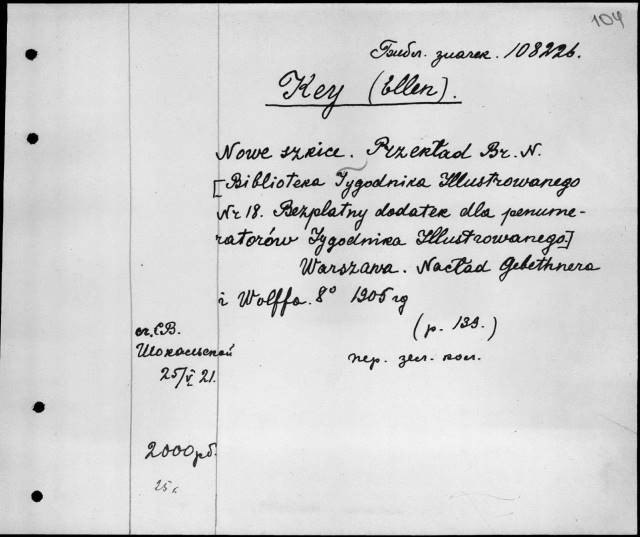 104
Библ. значек. 108226.
Key (Ellen).
Nowe szkice. Przekład Br. N.
[Biblioteka Tygodnika Illustrowanego
Nr 18. Bezpłatny dodatek dla penume-
ratorów Tygodnika Illustrowanego]
Warszawa. Nacład Gebethnera
i Wolffa. 8° 1905 rg
(p. 139.)
от Е.В.
Шокальской
25/V 21.
пер. зел. кол.
2000 рб.
25 к